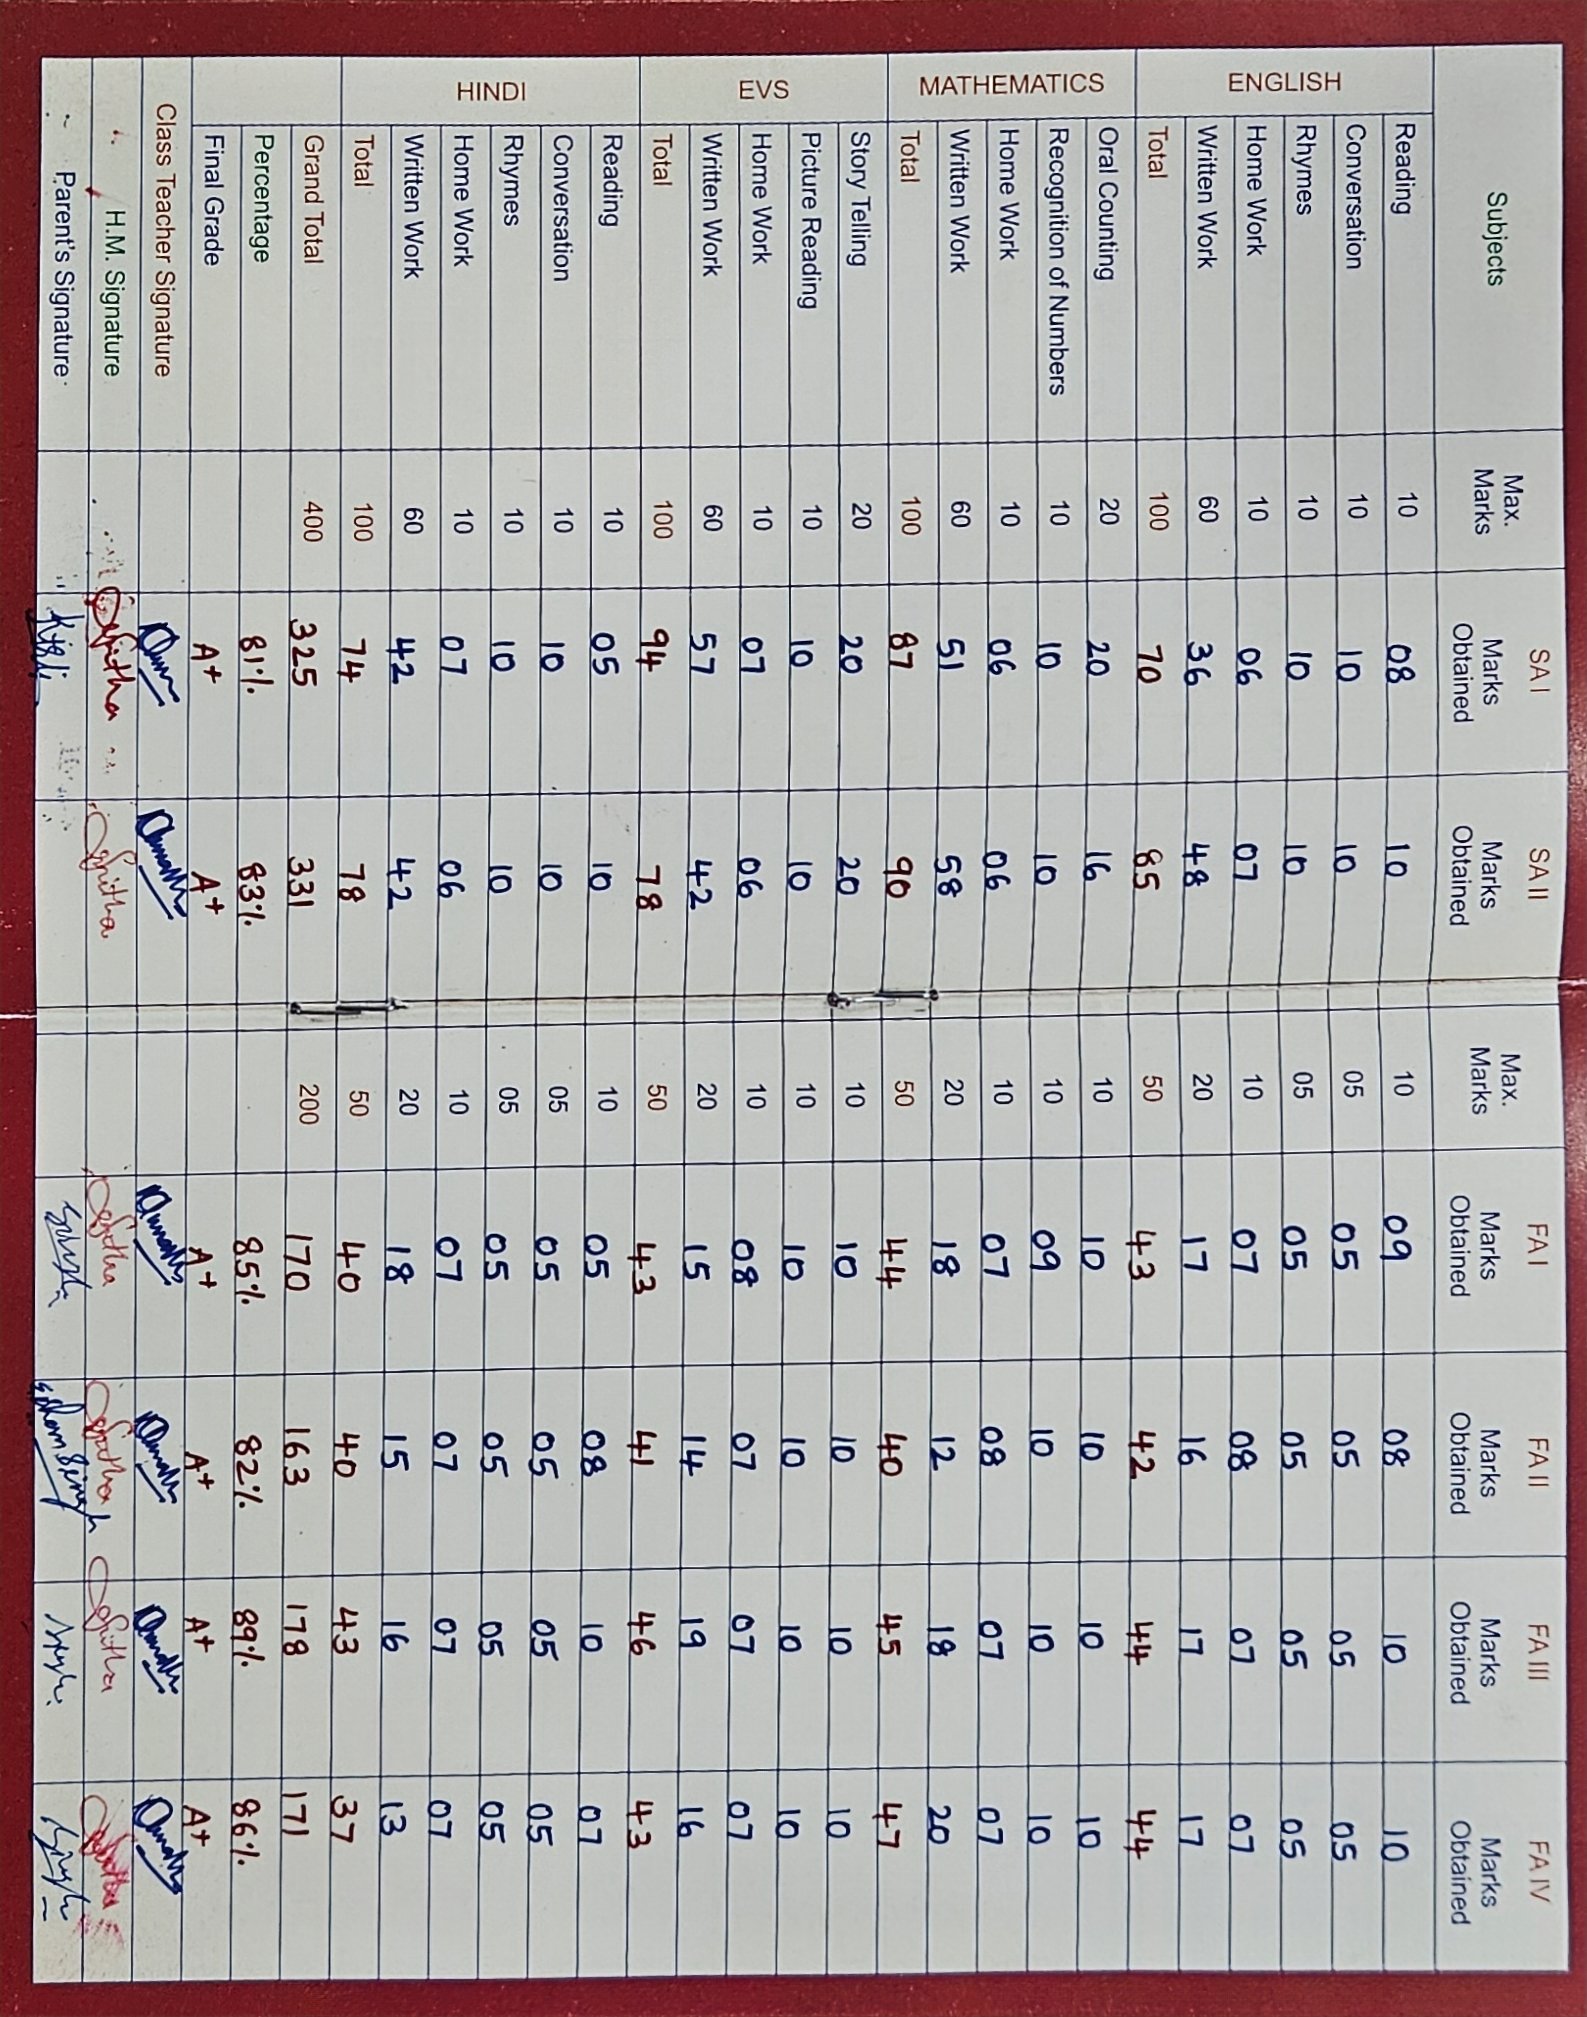 Subjects Max. Marks SA I Marks Obtained SA II Marks Obtained Max. Marks FA I Marks Obtained FA II Marks Obtained FA III Marks Obtained FA IV Marks Obtained
ENGLISH
Reading 10 08 10 10 09 08 10 10
Conversation 10 10 10 05 05 05 05 05
Rhymes 10 10 10 05 05 05 05 05
Home Work 10 06 07 10 07 08 07 07
Written Work 60 36 48 20 17 16 17 17
Total 100 70 85 50 43 42 44 44
MATHEMATICS
Oral Counting 20 20 16 10 10 10 10 10
Recognition of Numbers 10 10 10 10 09 10 10 10
Home Work 10 06 06 10 07 08 07 07
Written Work 60 51 58 20 18 12 18 20
Total 100 87 90 50 44 40 45 47
EVS
Story Telling 20 20 20 10 10 10 10 10
Picture Reading 10 10 10 10 10 10 10 10
Home Work 10 07 06 10 08 07 07 07
Written Work 60 57 42 20 15 14 19 16
Total 100 94 78 50 43 41 46 43
HINDI
Reading 10 05 10 10 05 08 10 07
Conversation 10 10 10 05 05 05 05 05
Rhymes 10 10 10 05 05 05 05 05
Home Work 10 07 06 10 07 07 07 07
Written Work 60 42 42 20 18 15 16 13
Total 100 74 78 50 40 40 43 37
Grand Total 400 325 331 200 170 163 178 171
Percentage 81% 83% 85% 82% 89% 86%
Final Grade A+ A+ A+ A+ A+ A+
Class Teacher Signature
H.M. Signature
Parent's Signature